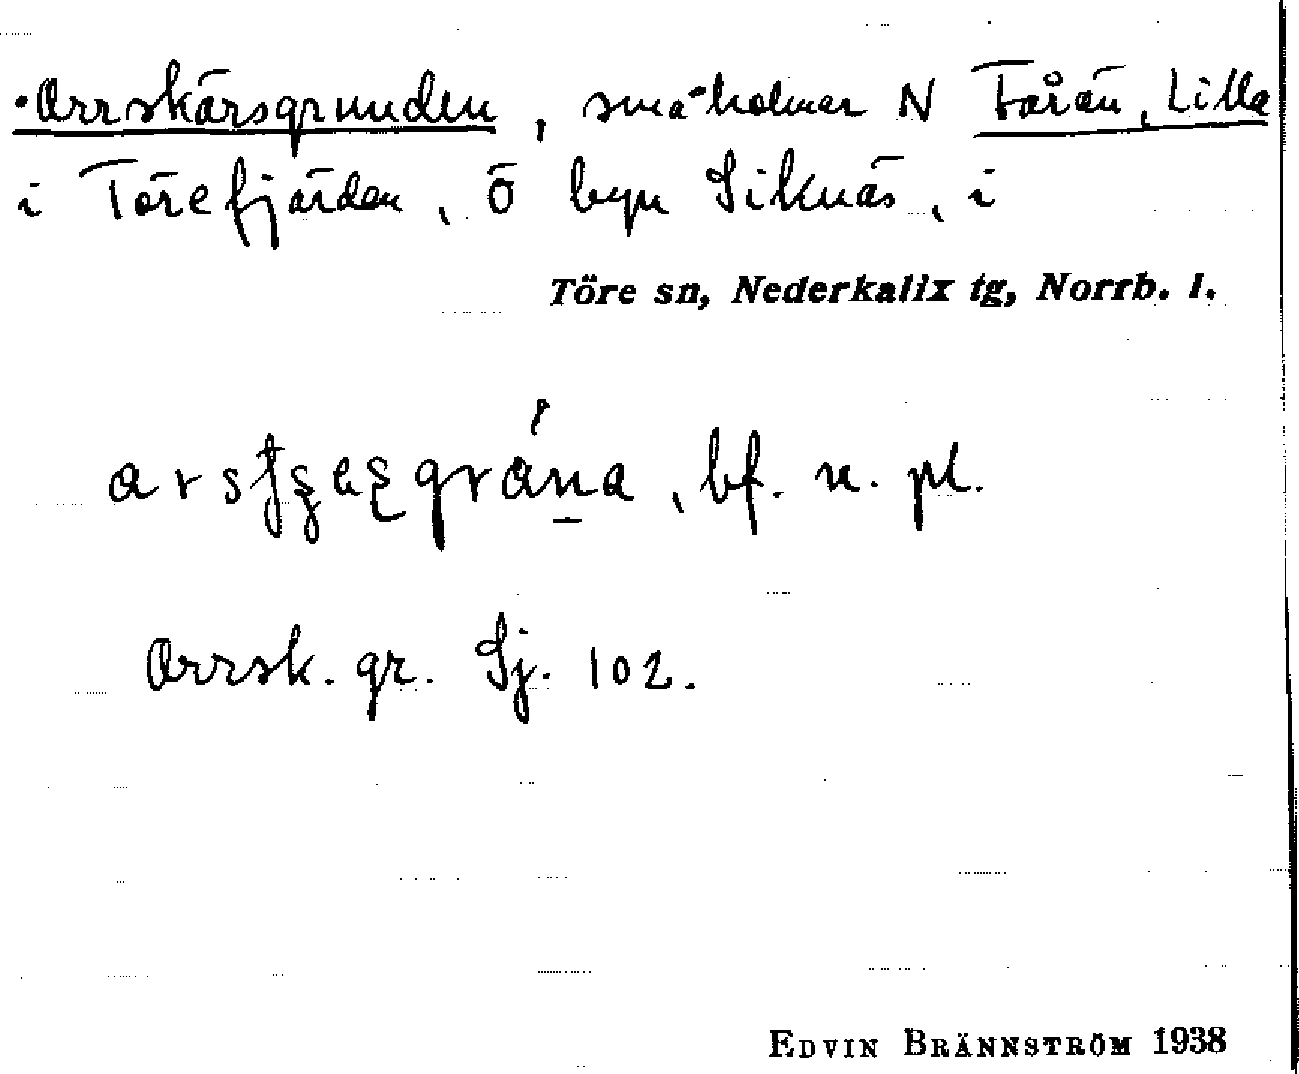 ·Orrskärsgrunden, småholmar N Fårön, Lilla
i Törefjärden, Ö byn Siknäs, i
Töre sn, Nederkalix tg, Norrb. l.
, bf. n. pl.
Orrsk. gr. Sj. 102.
EDVIN BRÄNNSTRÖM 1938